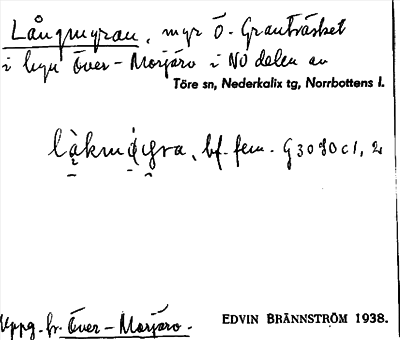 Långmyran, myr Ö. Granträsket
i byn Över-Morjärv i NO delen av
Töre sn, Nederkalix tg, Norrbottens l.
bf. fem. G3080c1, 2
Uppg. fr. Över-Morjärv.
EDVIN BRÄNNSTRÖM 1938.